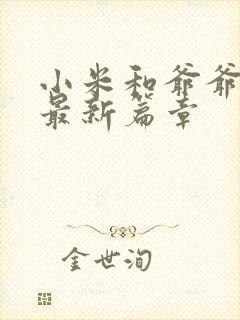 小米和爷爷
最新篇章
金世洵